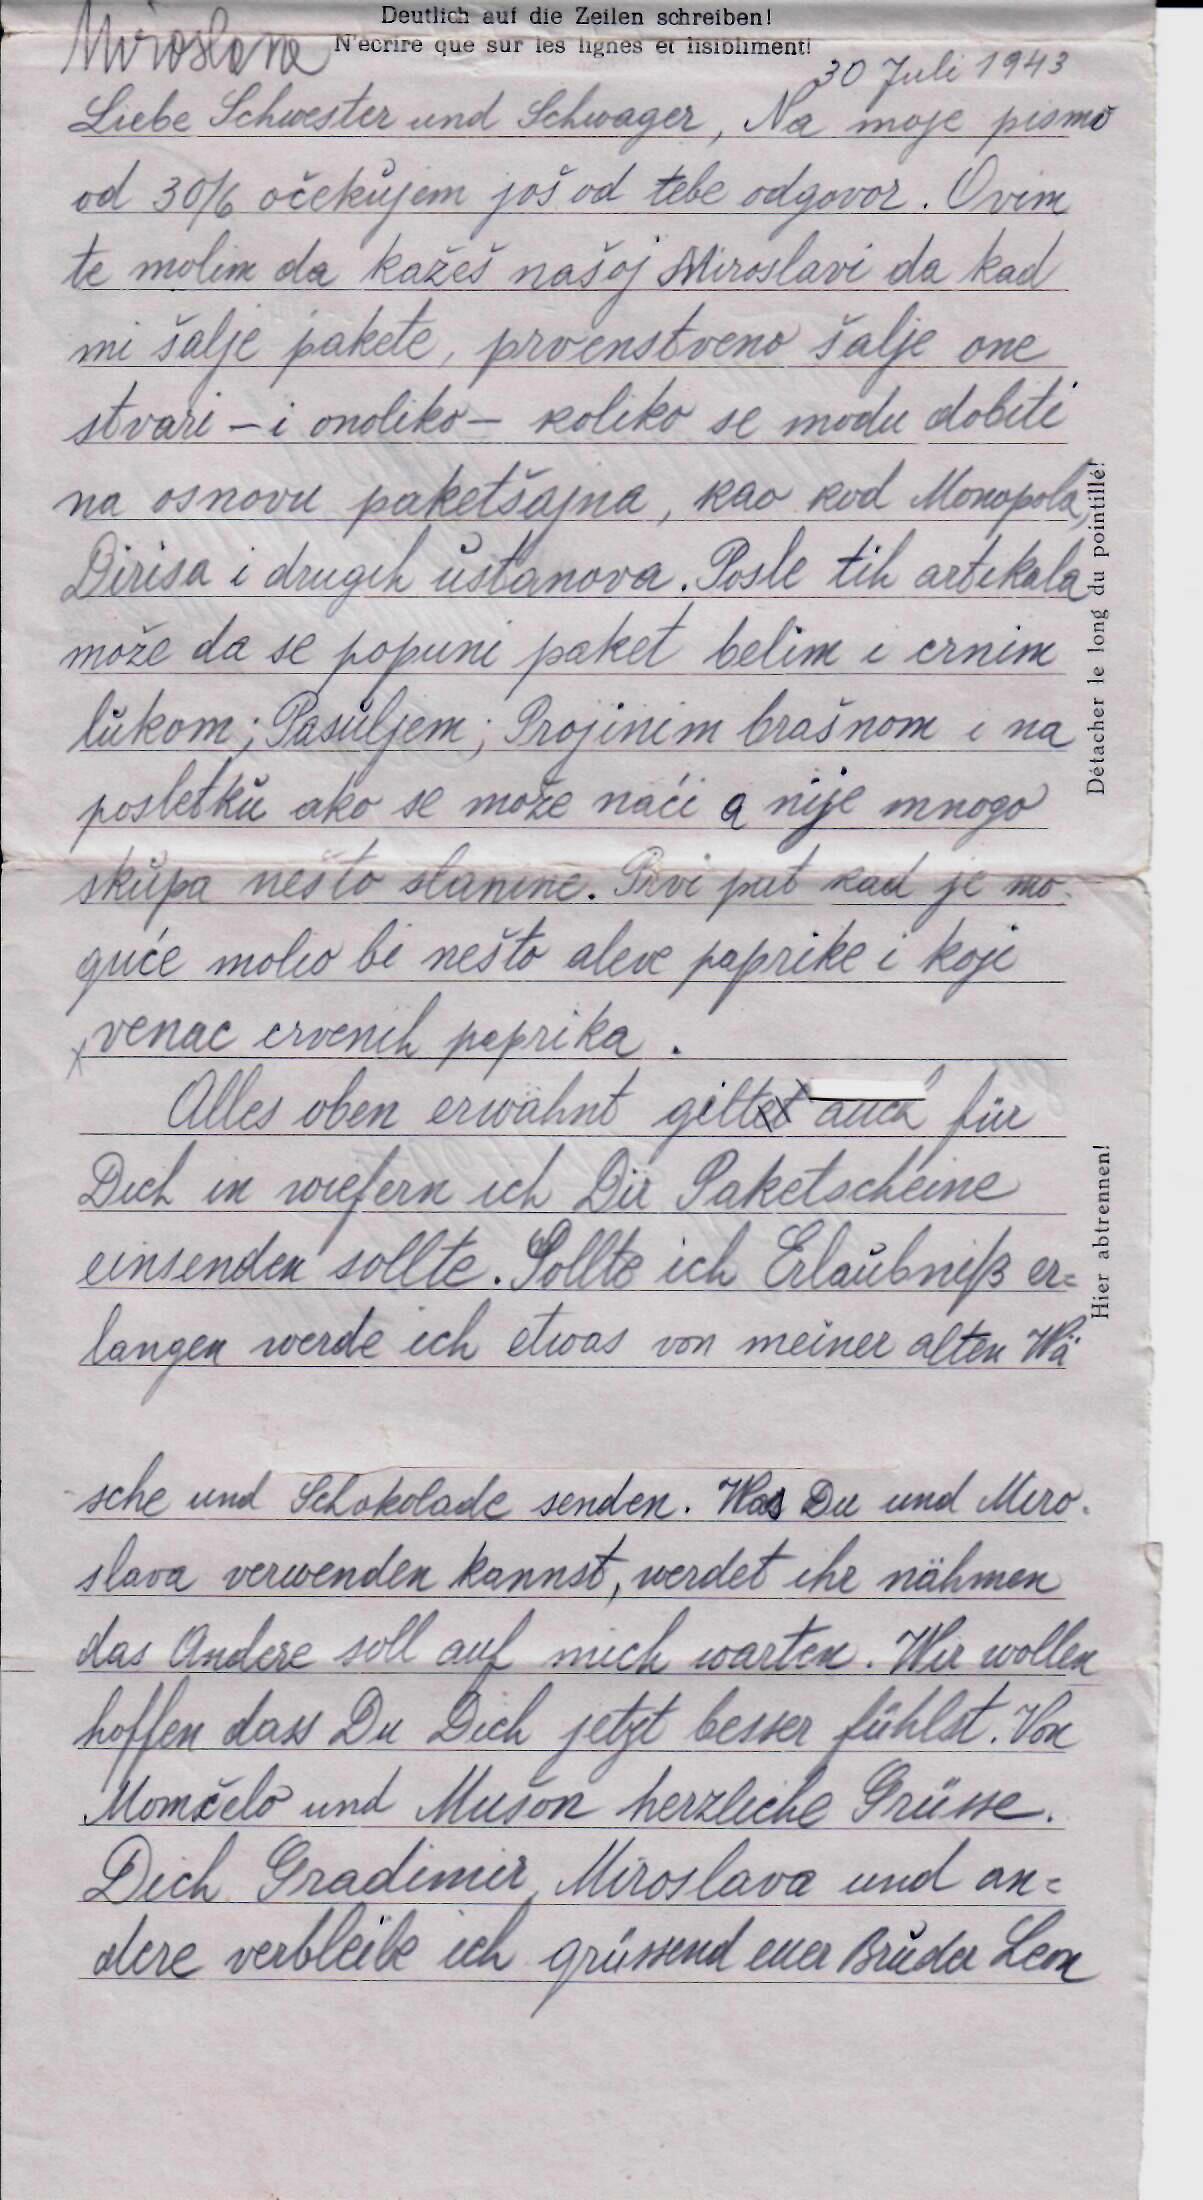 Deutlich auf die Zeilen schreiben!
N'écrire que sur les lignes et lisiblement!
Miroslava
30 Juli 1943
Liebe Schwester und Schwager, Na moje pismo
od 30/6 očekujem još od tebe odgovor. Ovim
te molim da kažeš našoj Miroslavi da kad
mi šalje pakete, prvenstveno šalje one
stvari – i onoliko – koliko se modu dobiti
na osnovu paketšajna, kao kod Monopola,
Dirisa i drugih ustanova. Posle tih artikala
može da se popuni paket belim i crnim
lukom; Pasuljem; Projinim brašnom i na
posletku ako se može naći a nije mnogo
skupa nešto slanine. Prvi put kad je mo-
guće molio bi nešto aleve paprike i koji
venac crvenih paprika.
Alles oben erwähnt giltet auch für
Dich in wiefern ich Dir Paketscheine
einsenden sollte. Sollte ich Erlaubniß er=
langen werde ich etwas von meiner alten Wä
sche und Schokolade senden. Was Du und Miro-
slava verwenden kannst, werdet ihr nähmen
das Andere soll auf mich warten. Wir wollen
hoffen dass Du Dich jetzt besser fühlst. Von
Momčelo und Mušon herzliche Grüsse.
Dich Gradimir, Miroslava und an=
dere verbleibe ich grüssend euer Bruder Leon
Détacher le long du pointillé!
Hier abtrennen!